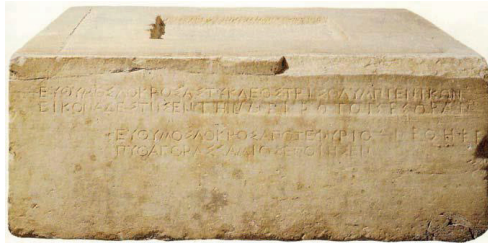 ΕΥΘΥΜΟΣΛΟΚΡΟΣΑΣΤΥΚΛΕΟΣΤΡΙΣΟΛΥΜΠΙΕΝΙΚΩΝ
ΕΙΚΟΝΑΔΕΣΤΗΣΕΝΤΗΝΔΕΒΡΟΤΟΙΣΕΣΟΡΑΝ
ΕΥΘΥΜΟΣΛΟΚΡΟΣΑΠΟΖΕΦΥΡΙΟ ΑΝΕΘΗΚΕ
ΠΥΘΑΓΟΡΑΣΣΑΜΙΟΣΕΠΟΙΗΣΕΝ